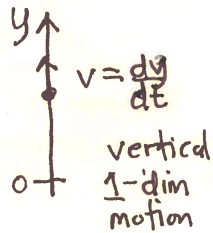 y
v = dy/dt
vertical
0
1-dim
motion